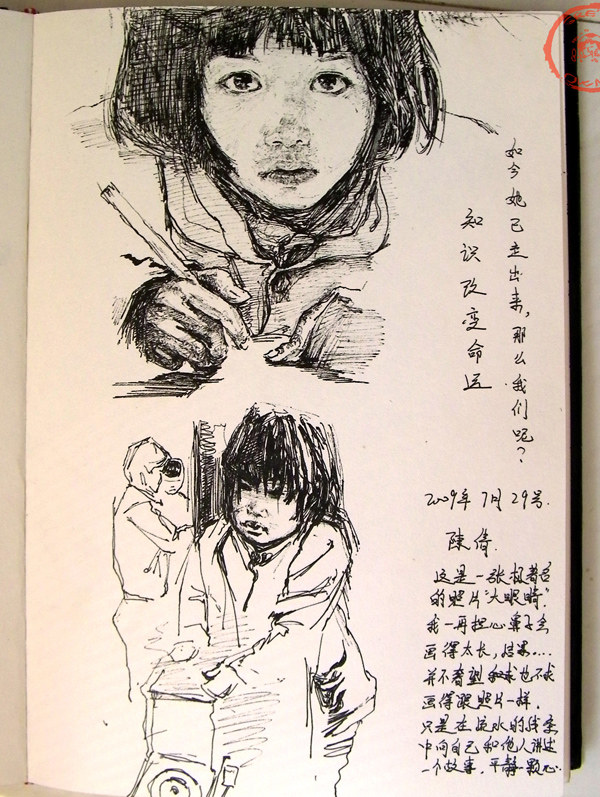 如今她已走出来，那么我们呢？
知识改变命运
2009年7月29号.
陈倩.
这是一张极著名
的照片“大眼睛”.
我一再担心鼻子会
画得太长，结果....
并不看型 和我也不求
画得跟照片一样.
只是在流水的线条
中向自己和他人讲述
一个故事，平静一颗心.